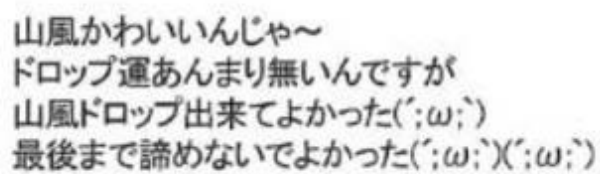 山風かわいいんじゃ～
ドロップ運あんまり無いんですが
山風ドロップ出来てよかった(´;ω;`)
最後まで諦めないでよかった(´;ω;`)(´;ω;`)